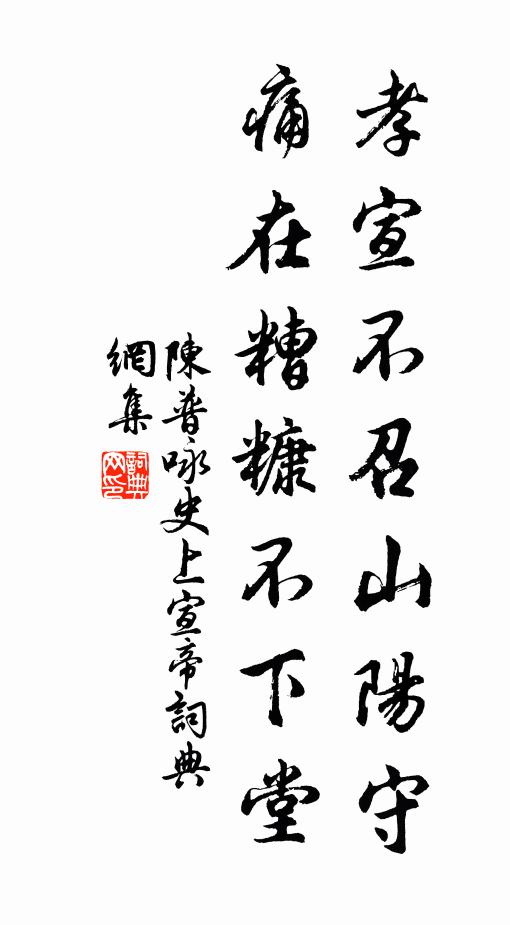 孝宣不召山陽守
痛在糟糠不下堂
陳普咏史上宣帝詞典
網集
詞典網印